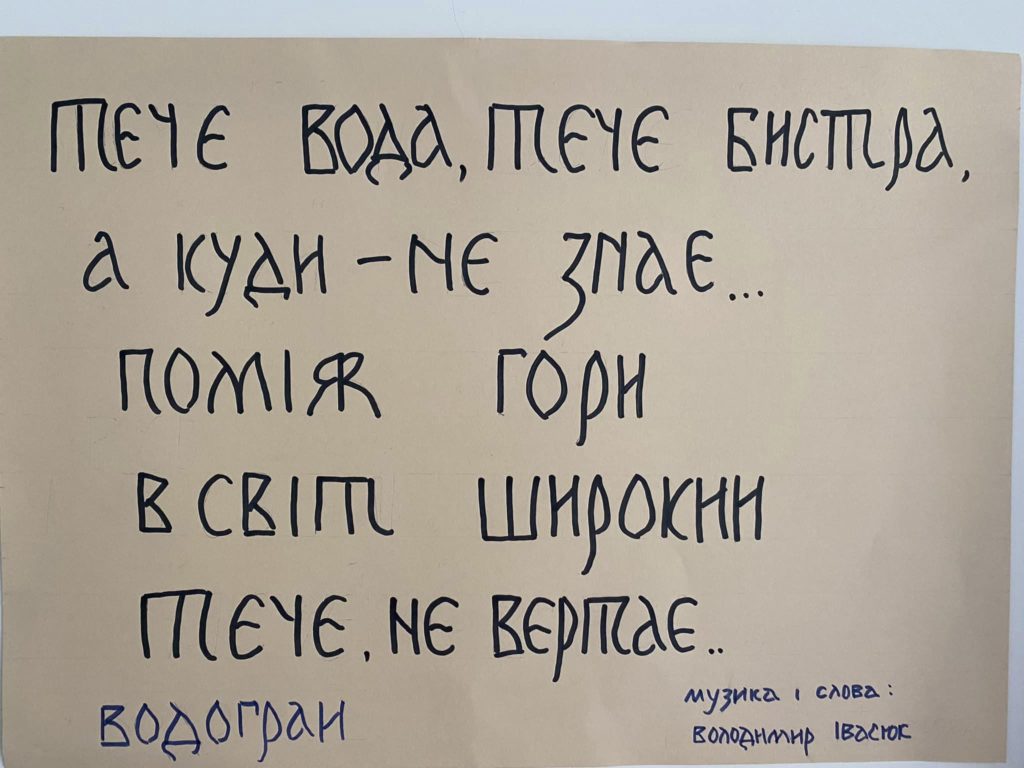 тече вода, тече бистра,
а куди - не знає...
поміж гори
в світ широкий
тече, не вертає..
музика і слова:
водограй
володимир Івасюк